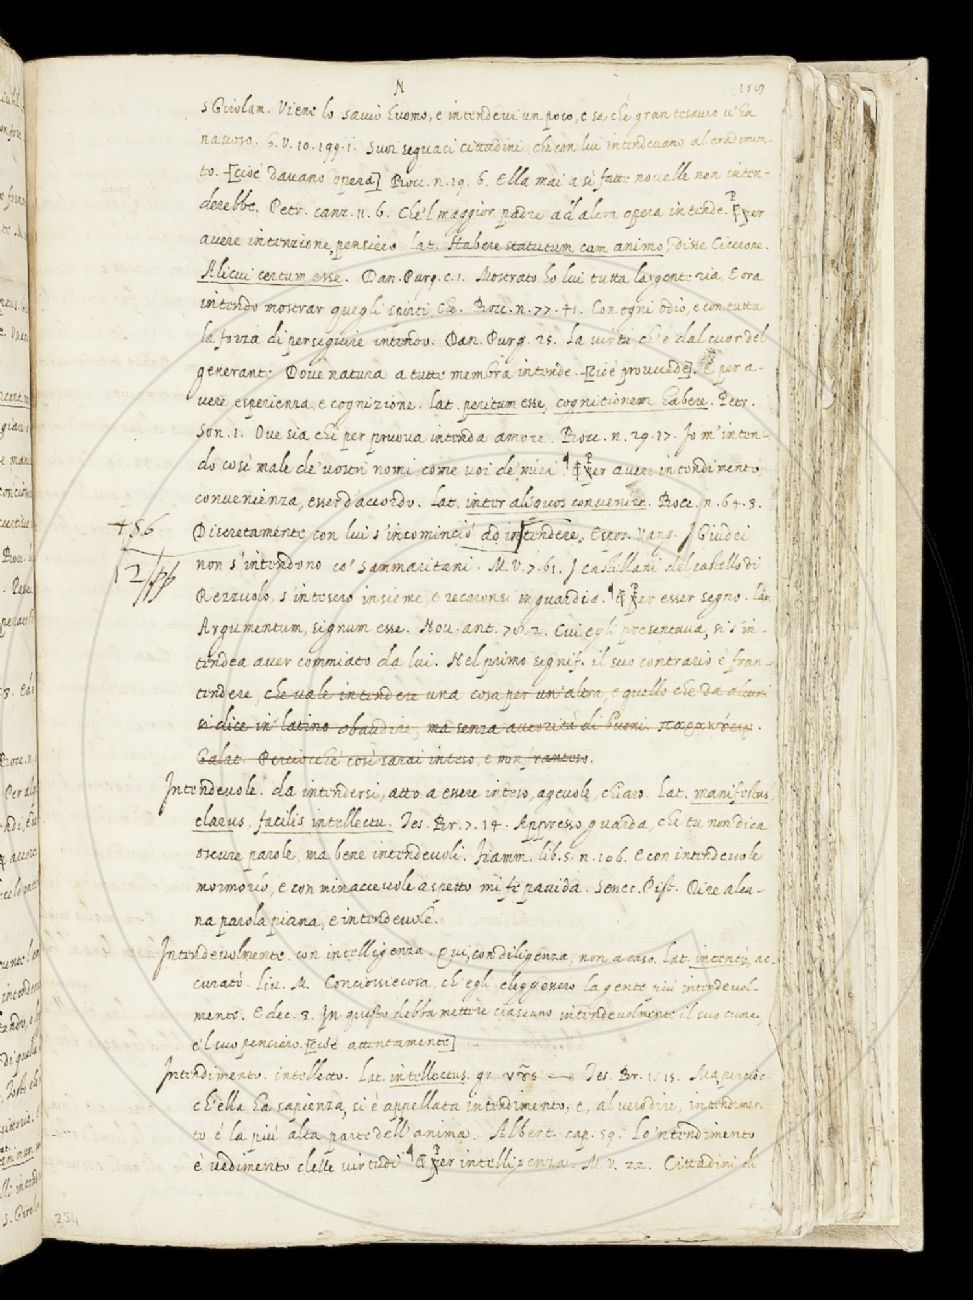 N
S Girolam. Viene lo savio huomo, e intendevi un poco, e sa che gran tesauro v'ha
nascoso. G. V. 10. 199. 1. Suoi seguaci cittadini, che con lui intendevano al tradimen-
to. [cioè davano opera] Bocc. n. 19. 6. Ella mai a sì fatte novelle non inten-
derebbe. Petr. canz. 11. 6. Che'l maggior padre ad altra opera intende. Per
avere intenzione, pensiero. Lat. Habere statutum cum animo, disse Cicerone.
Alicui certum esse. Dan. Purg. c. 1. Mostrato ho lui tutta la gente ria, E ora
intendo mostrar quegli spirti, Che. Bocc. n. 77. 41. Con ogni odio, e con tutta
la forza di perseguire intendo. Dan. Purg. 25. La virtù ch'è dal cuor del
generante Dove natura a tutte membra intende. [cioè provvede]. E per a-
vere esperienza, e cognizione. Lat. peritum esse, cognitionem habere. Petr.
Son. 1. Ove sia chi per pruova intenda amore. Bocc. n. 29. 17. Io m'inten-
do così male de' vostri nomi come voi de' miei. Per avere intendimento,
convenienza, esser d'accordo. Lat. inter aliquos convenire. Bocc. n. 64. 8.
456
Discretamente con lui s'incominciò ad intendere. Vang. I Giudei
12/
non s'intendono co' Sammaritani. M. V. 7. 61. I castellani del castello di
Pezzuolo, s'intesero insieme, e recaronsi in guardia. Per esser segno. Lat.
Argumentum, signum esse. Nov. ant. 70. 2. Cui egli presentava, si s'in-
tendea aver commiato da lui. Nel primo signif. il suo contrario è fran-
tendere, che vale intendere una cosa per un'altra, e quello che da alcuni
si dice in latino obaudire, ma senza autorità di buoni.
Galat. Perciocchè così sarai inteso, e non franteso.
Intendevole. da intendersi, atto a essere inteso, agevole, chiaro. Lat. manifestus,
clarus, facilis intellectu. Tes. Br. 7. 14. Appresso guarda, che tu non dica
oscure parole, ma bene intendevoli. Fiamm. lib. 5. n. 106. E con intendevole
mormorio, e con minaccevole aspetto mi fe pavida. Senec. Pist. Dire alcu-
na parola piana, e intendevole.
Intendevolmente. con intelligenza. Qui, con diligenza, non a caso. Lat. intentè, ac-
curatè. Liv. M. Conciossiecosa, ch'egli eleggessero la gente più intendevol-
mente. E dec. 3. In questo debba mettere ciascuno intendevolmente il suo cuore,
e'l suo pensiero. [cioè attentamente]
Intendimento. intelletto. Lat. intellectus. gr. νοῦς — Tes. Br. 1. 15. Ma perciò
ch'ella ha sapienza, si è appellata intendimento, e, al ver dire, intendimen-
to è la più alta parte dell'anima. Albert. cap. 59. Lo'ntendimento
è vedimento delle virtudi. Per intelligenza. M. V. 22. Cittadini di
254